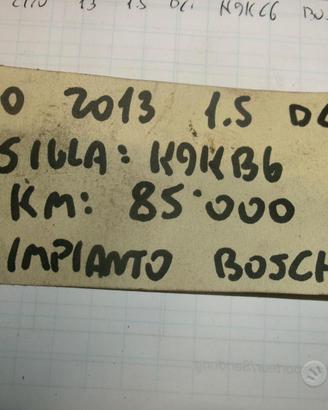 13 1.5 DCI K9KC6 BOS
O 2013 1.5 DC
SIGLA: K9KB6
KM: 85'000
IMPIANTO BOSCH